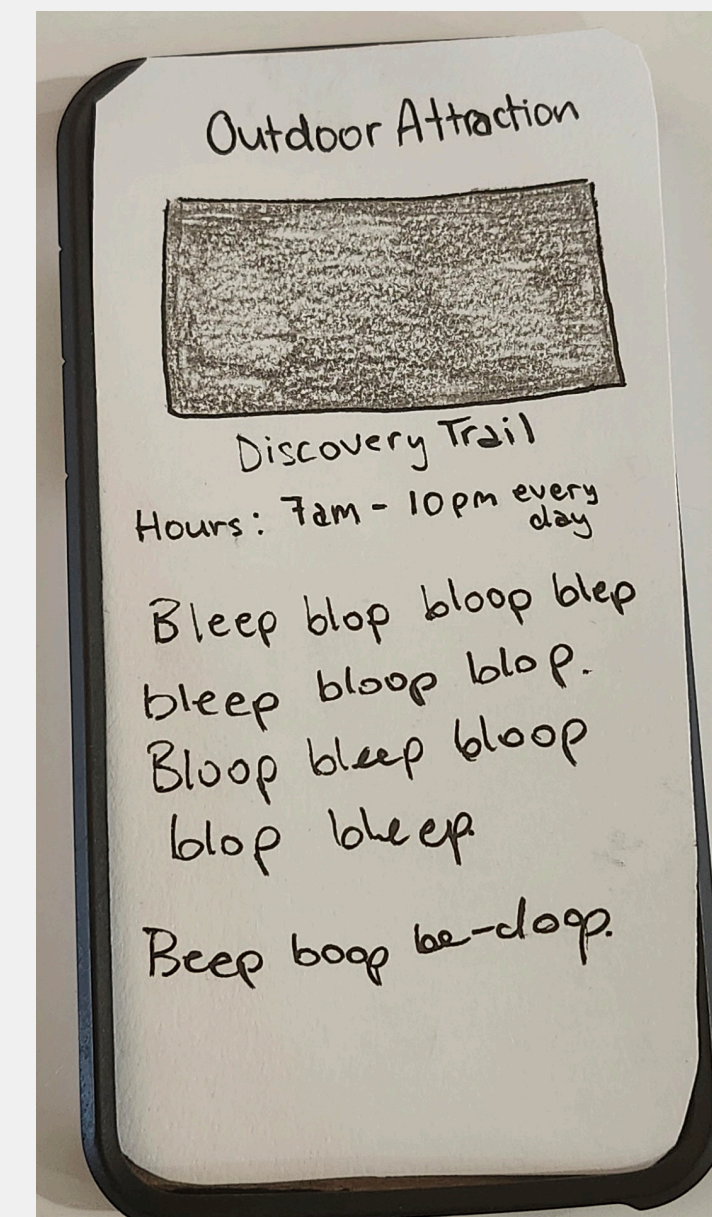 Outdoor Attraction
Discovery Trail
Hours: 7am - 10pm every
day
Bleep blop bloop blep
bleep bloop blop.
Bloop bleep bloop
blop bleep.
Beep boop be-doop.